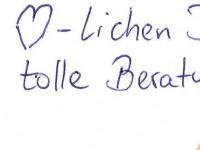 ♡-lichen
tolle Beratu